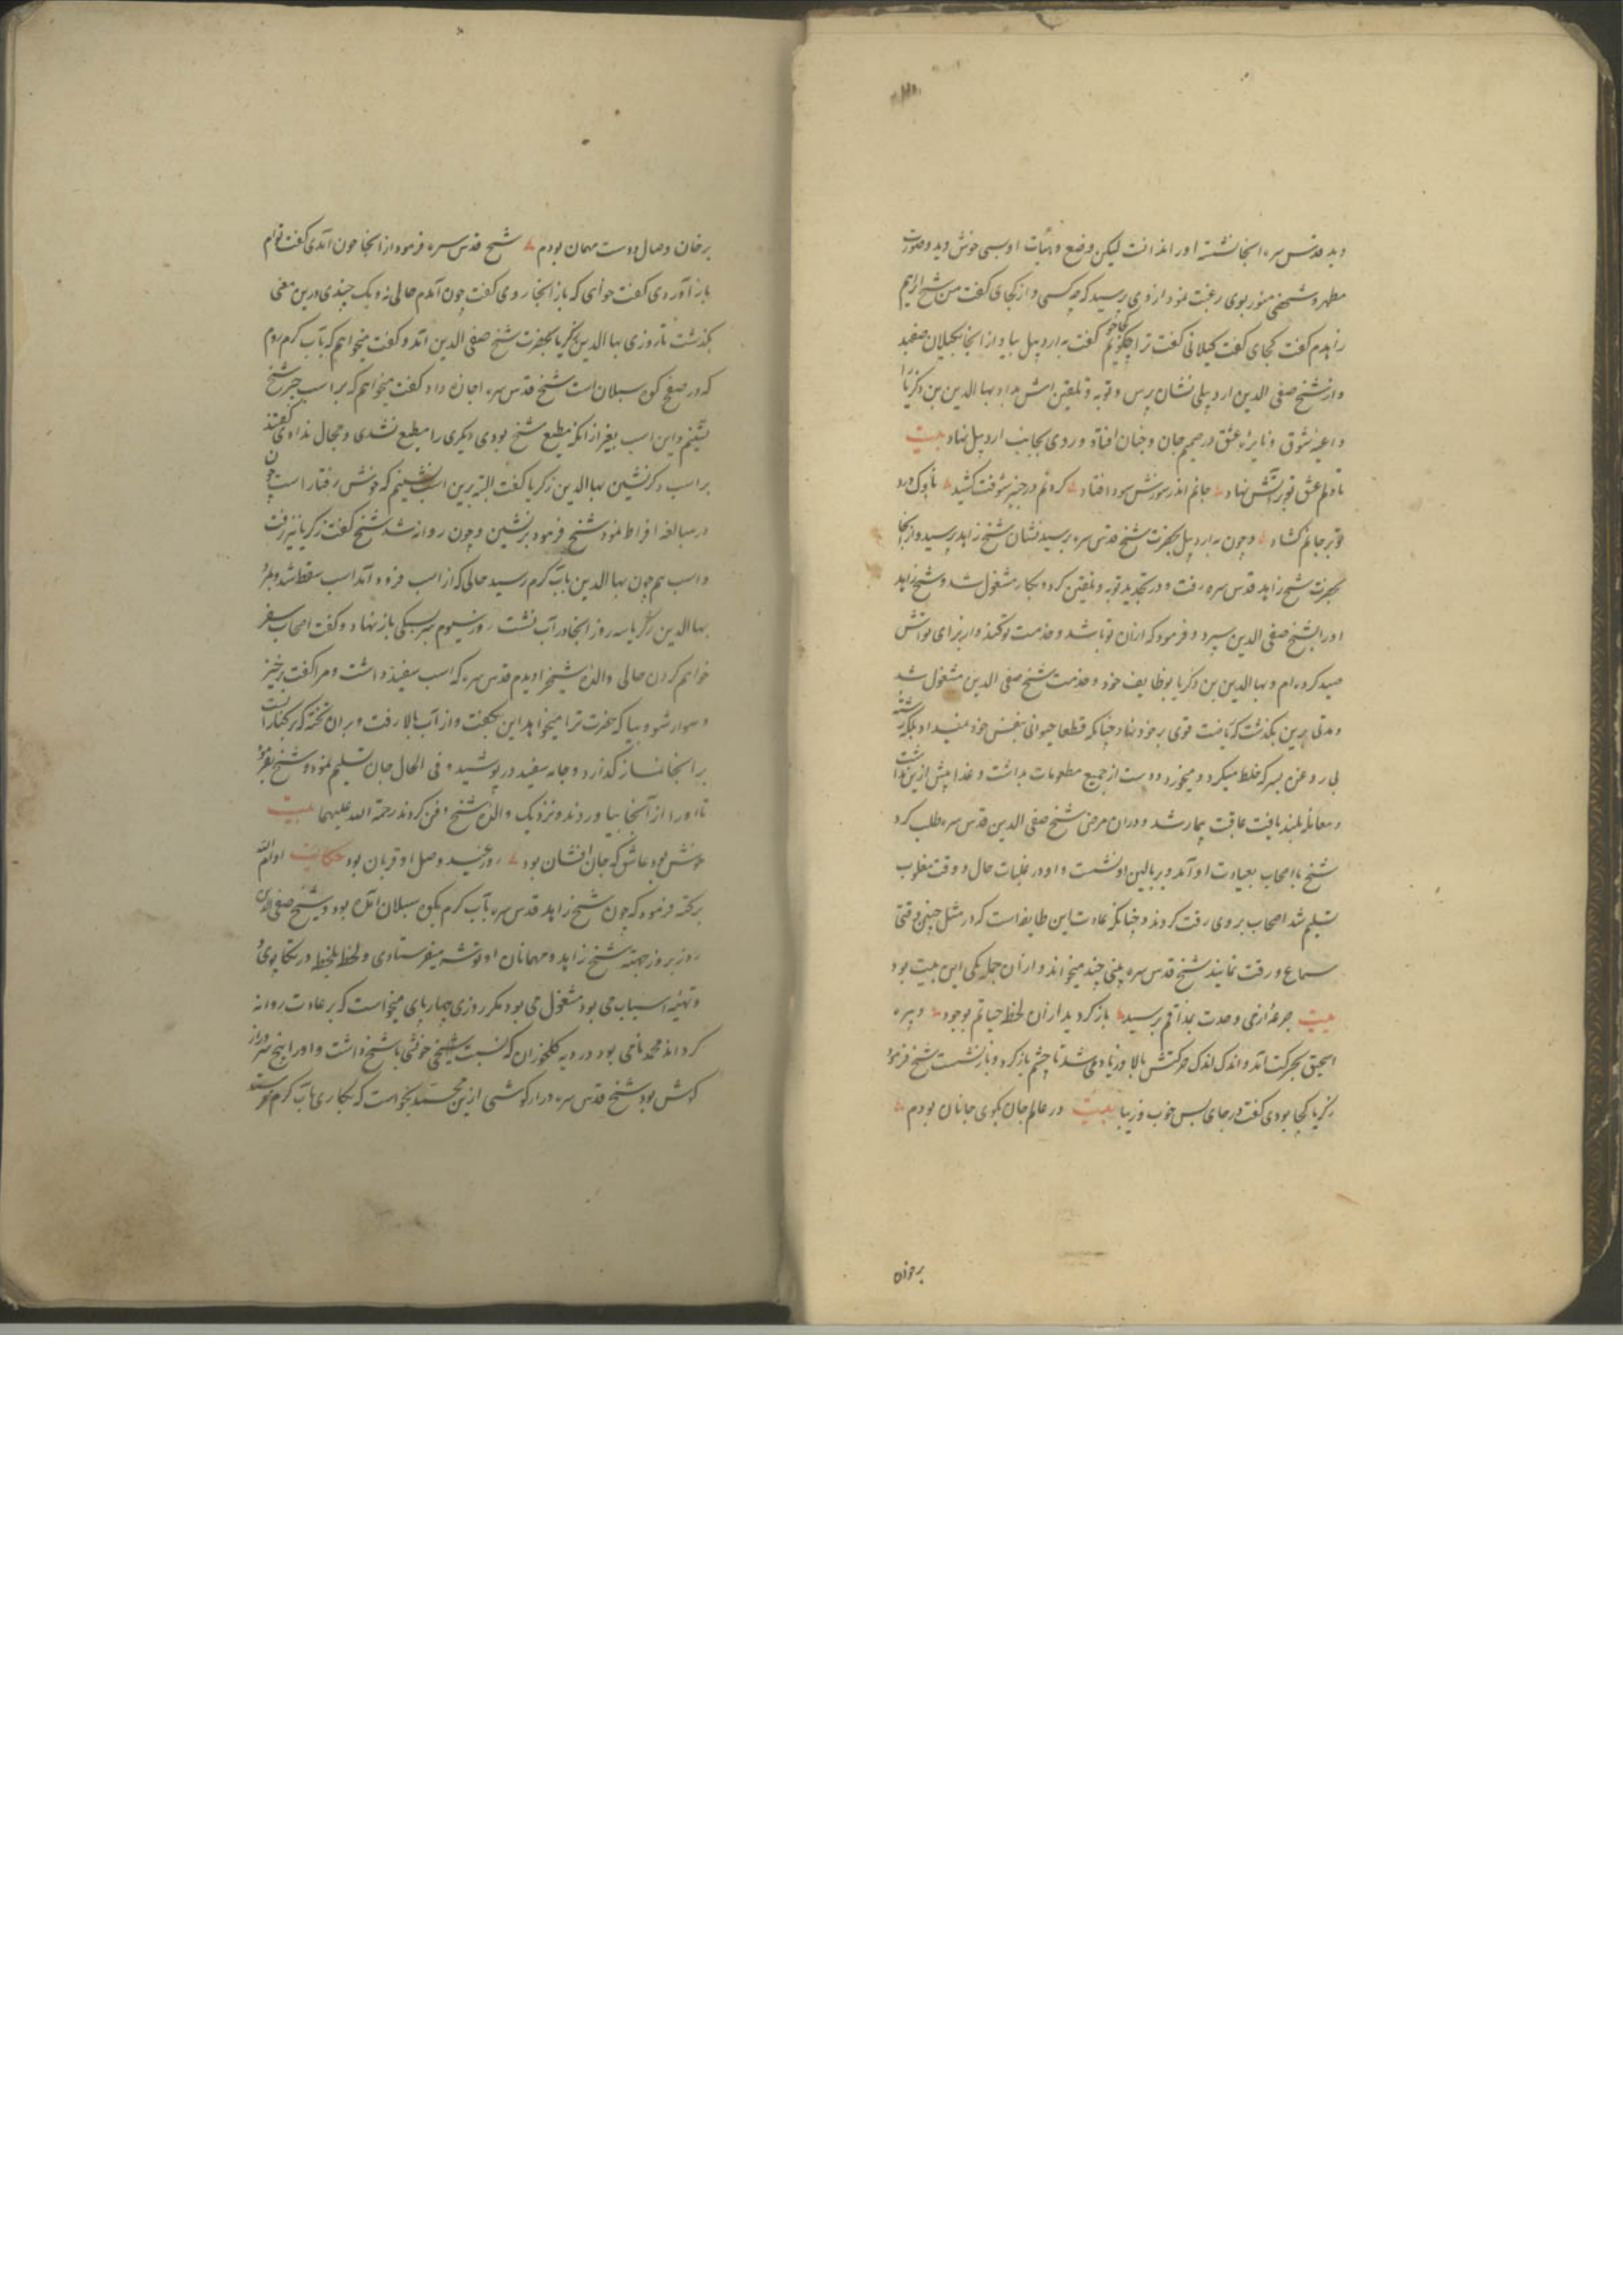 دید قدس سره اینجا نشسته او را ندانست لیکن وضع و هیأت او بسی خوش دید و صورت
مطهر و شخصی منور بوی رغبت نمود از وی پرسید که چه کسی و از کجای گفت من شیخ ابراهیم
زاهدم گفت کجای گفت گیلانی گفت ترا کجا جویم گفت به اردبیل بیا و از آنجا بگیلان
و از شیخ صفی الدین اردبیلی نشان پرس و توبه و تلقینش بداد بها الدین بن زکریا را
داعیه شوق و نایره عشق در صمیم جان و جنان افتاد و روی بجانب اردبیل نهاد بیت
تا دلم عشق تو بر آتش نهاد جانم اندر سوزش سودا فتاد کردنم در چنبر شوقت کشید ناوک درد
تو بر جانم گشاد و چون به اردبیل بحضرت شیخ قدس سره برسید نشان شیخ زاهد پرسید و از آنجا
بحضرت شیخ زاهد قدس سره رفت و در تجدید توبه و تلقین کرد و بکار مشغول شد و شیخ زاهد
او را بشیخ صفی الدین سپرد و فرمود که از آن تو باشد و خدمت تو کند و از برای تو اتش
صید کرده ام و بها الدین بن زکریا بوظایف خود و خدمت شیخ صفی الدین مشغول شد
و مدتی برین بگذشت که ریاضت قوی بر خود نهاد چنانکه قطعا حیوانی بنفس خود نمیداد بلکه
بی روغن بسرکه خلط میکرد و میخورد و دست از جمیع مطعومات بداشت و غذا بیش ازین نداشت
و معامله بلند یافت عاقبت بیمار شد و در آن مرض شیخ صفی الدین قدس سره طلب کرد
شیخ با اصحاب بعیادت او آمد و بر بالین او نشست و او در غلبات حال و وقت مغلوب
تسلیم شد اصحاب بر وی رقت کردند و چنانکه عادت این طایفه است که در مثل چنین وقتی
سماع و رقت نمایند شیخ قدس سره بیتی چند میخواند و از آن جمله یکی این بیت بود
بیت جرعه از می وحدت بمذاقم برسید باز گردید از آن لحظه حیاتم بوجود و پیره
اسحق بحرکت آمد و اندک اندک حرکتش بالا و زیاده می شد تا چشم باز کرد و باز نشست شیخ فرمود
زکریا کجا بودی گفت در جای بس خوب و زیبا بیت در عالم جان بکوی جانان بودم
برخوان
برخوان وصال دوست مهمان بودم شیخ قدس سره فرمود از آنجا چون آمدی گفت توام
باز آوردی گفت خواهی که باز آنجا روی گفت چون آمدم حالی نه و یک چندی درین معنی
بگذشت تا روزی بها الدین زکریا بحضرت شیخ صفی الدین آمد و گفت میخواهم که بآب گرم روم
که در صفح کوه سبلان است شیخ قدس سره اجازه داد گفت میخواهم که بر اسب شیخ
نشینم و این اسب بغیر از آنکه مطیع شیخ بودی دیگری را مطیع نشدی و مجال ندادی گفتند
بر اسب دگر نشین بها الدین زکریا گفت البته برین اسب نشینم که خوش رفتار است چون
در مبالغه افراط نمود شیخ فرمود برنشین و چون روانه شد شیخ گفت زکریا نیز رفت
و اسب هم چون بها الدین بآب گرم رسید حالی که از اسب فرود آمد اسب سقط شد و بمرد
بها الدین زکریا سه روز آنجا در آب نشست روز سیوم سر بسنگی باز نهاد و گفت اصحاب سفر
خواهم کردن حالی والده شیخ را دیدم قدس سره که اسب سفید داشت و مرا گفت برخیز
و سوار شو و بیا که حضرت ترا میخواهد این بگفت و از آب بالا رفت و بر آن تخته که بر کنار است
بر آنجا نماز گذارد و جامه سفید در پوشید و فی الحال جان تسلیم نمود و شیخ بفرمود
تا او را از آنجا بیاوردند و نزدیک والده شیخ دفن کردند رحمة الله علیهما بیت
خوش بود عاشق که جان افشان بود روز عید وصل او قربان بود حکایت ادام الله
برکته فرمود که چون شیخ زاهد قدس سره بآب گرم بکوه سبلان آمده بود و شیخ صفی الدین
روز بروز جهت شیخ زاهد و مهمانان او توشه میفرستادی و لحظه بلحظه در تکاپوی
و تهیه اسباب می بود مشغول می بود مگر روزی چهارپای میخواست که بر عادت روانه
کرداند محمد نامی بود در دیه کلخوران که نسبت خویشی با شیخ داشت و او را پنج سر دراز
گوش بود شیخ قدس سره درازگوشی ازین محمد بخواست که بکاری بآب گرم فرستد